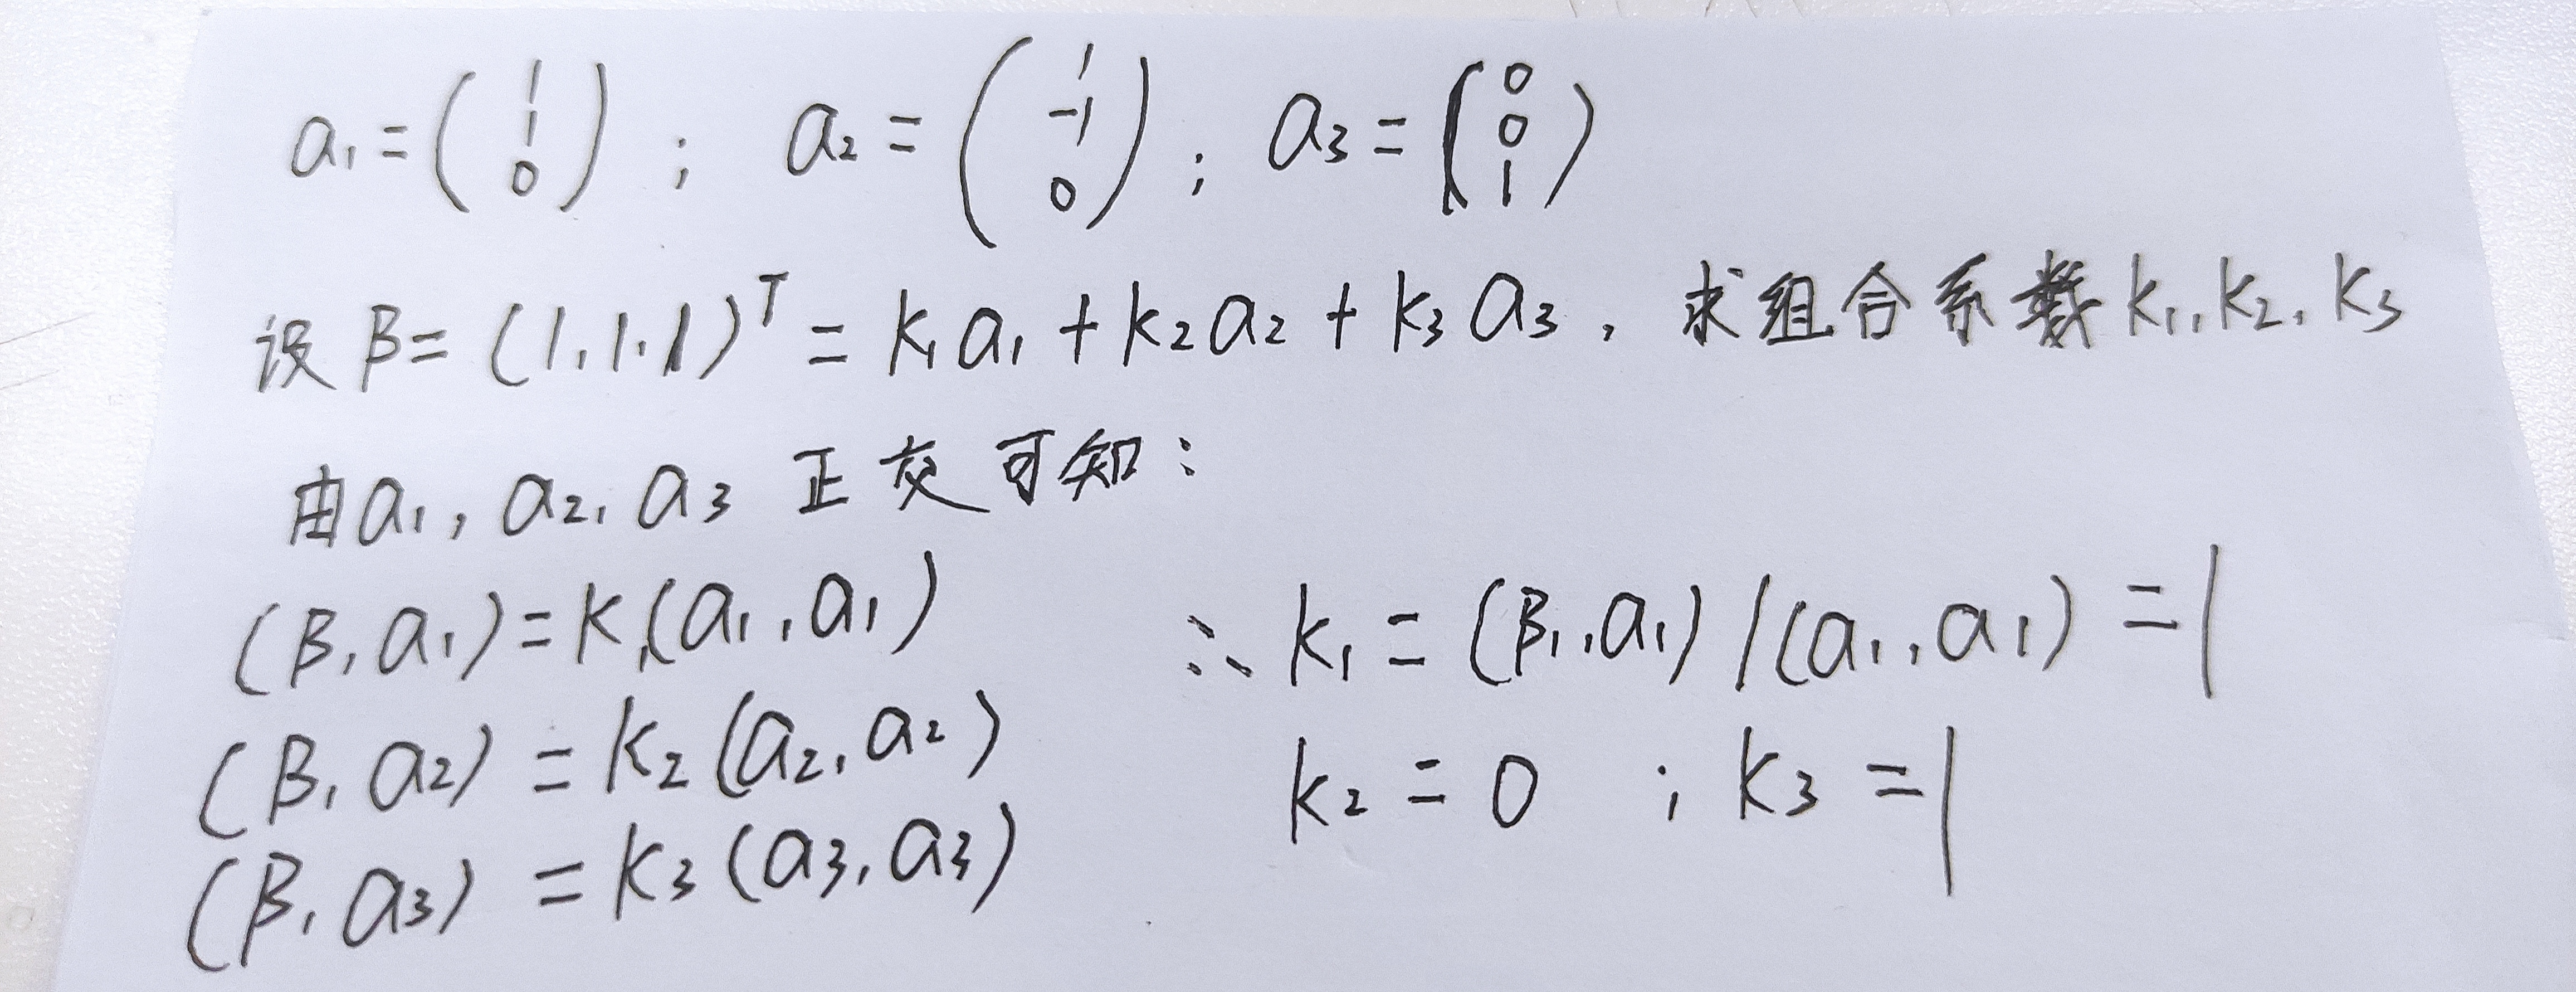 a₁ = (1 1 0) ; a₂ = (1 -1 0) ; a₃ = (0 0 1)
设 β = (1,1,1)ᵀ = k₁a₁ + k₂a₂ + k₃a₃ , 求组合系数 k₁, k₂, k₃
由 a₁, a₂, a₃ 正交可知:
(β, a₁) = k₁(a₁, a₁) ∴ k₁ = (β₁, a₁) / (a₁, a₁) = 1
(β, a₂) = k₂(a₂, a₂) k₂ = 0 ; k₃ = 1
(β, a₃) = k₃(a₃, a₃)